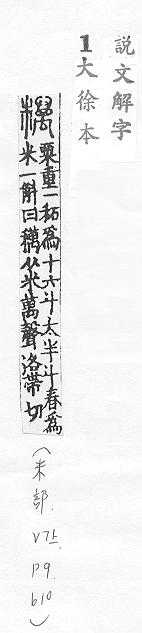 說文解字
1大徐本
𥽗
粟重一䄷為十六斗太半斗舂為
米一斛曰𥽗从米萬聲洛帶切
(米部. V7上. P9. b10)